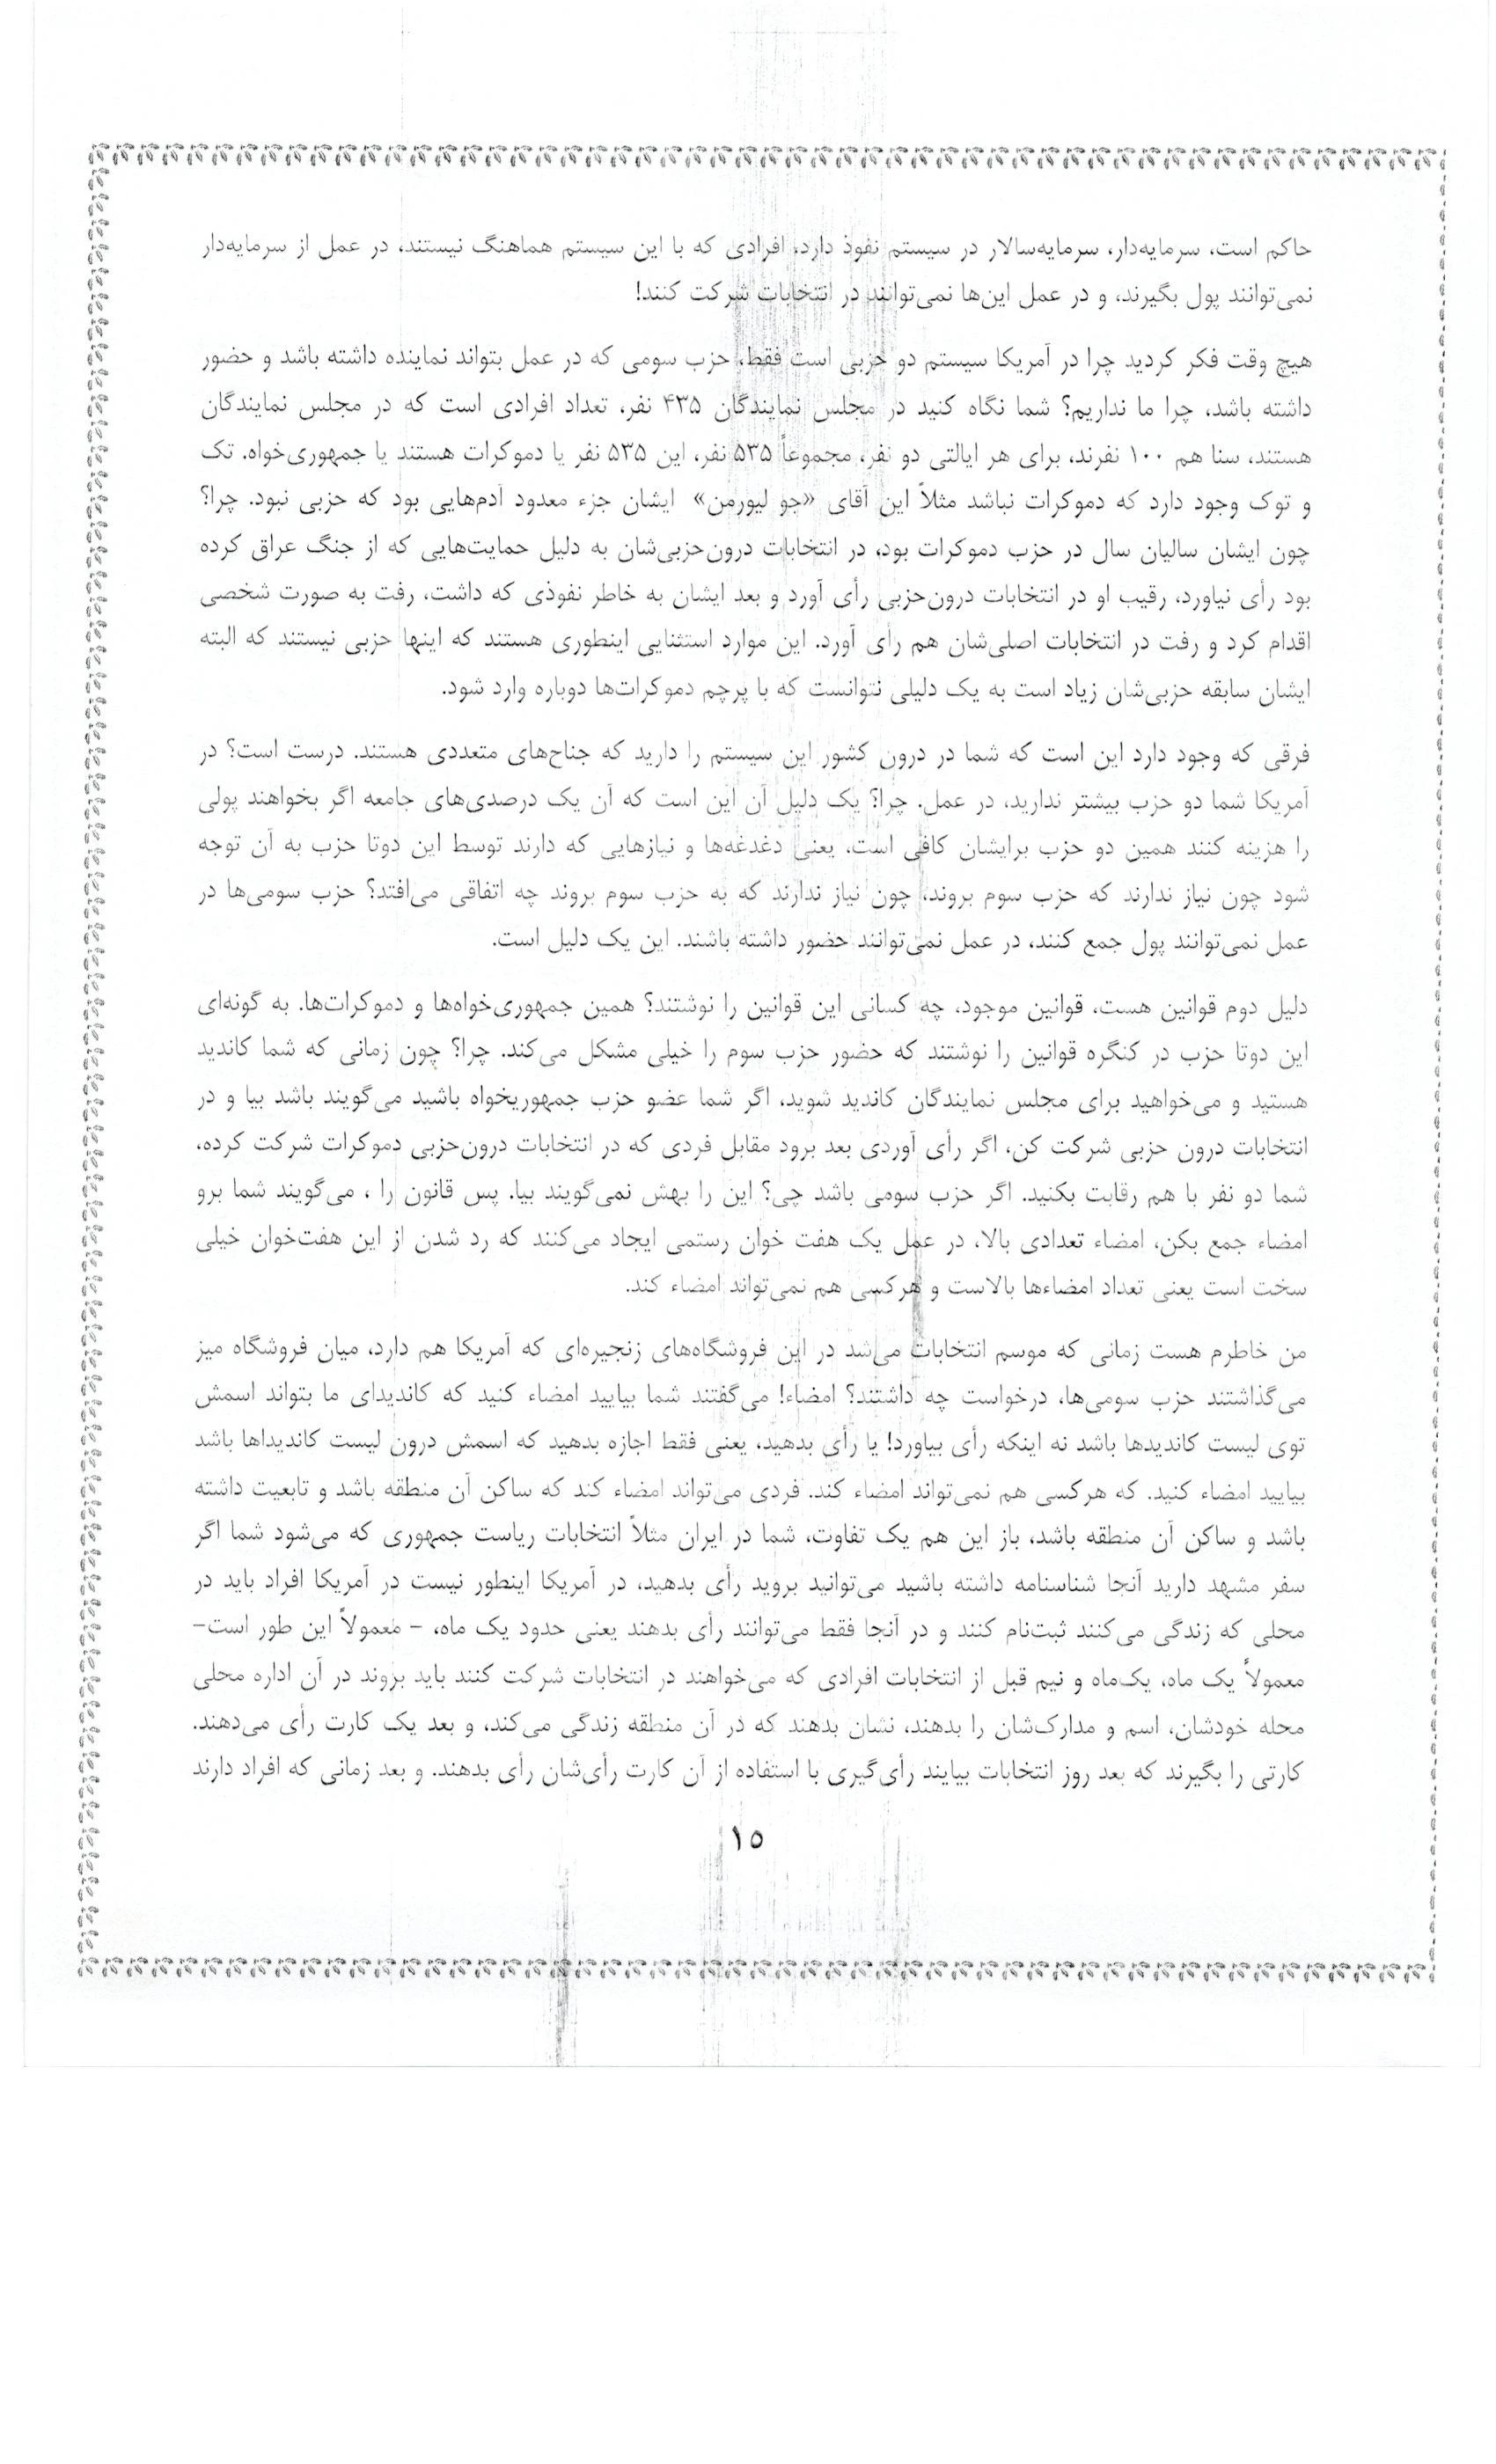 حاکم است، سرمایه‌دار، سرمایه‌سالار در سیستم نفوذ دارد، افرادی که با این سیستم هماهنگ نیستند، در عمل از سرمایه‌دار
نمی‌توانند پول بگیرند، و در عمل این‌ها نمی‌توانند در انتخابات شرکت کنند!
هیچ وقت فکر کردید چرا در آمریکا سیستم دو حزبی است فقط، حزب سومی که در عمل بتواند نماینده داشته باشد و حضور
داشته باشد، چرا ما نداریم؟ شما نگاه کنید در مجلس نمایندگان ۴۳۵ نفر، تعداد افرادی است که در مجلس نمایندگان
هستند، سنا هم ۱۰۰ نفرند، برای هر ایالتی دو نفر، مجموعاً ۵۳۵ نفر، این ۵۳۵ نفر یا دموکرات هستند یا جمهوری‌خواه. تک
و توک وجود دارد که دموکرات نباشد مثلاً این آقای «جو لیورمن» ایشان جزء معدود آدم‌هایی بود که حزبی نبود. چرا؟
چون ایشان سالیان سال در حزب دموکرات بود، در انتخابات درون‌حزبی‌شان به دلیل حمایت‌هایی که از جنگ عراق کرده
بود رأی نیاورد، رقیب او در انتخابات درون‌حزبی رأی آورد و بعد ایشان به خاطر نفوذی که داشت، رفت به صورت شخصی
اقدام کرد و رفت در انتخابات اصلی‌شان هم رأی آورد. این موارد استثنایی اینطوری هستند که اینها حزبی نیستند که البته
ایشان سابقه حزبی‌شان زیاد است به یک دلیلی نتوانست که با پرچم دموکرات‌ها دوباره وارد شود.
فرقی که وجود دارد این است که شما در درون کشور این سیستم را دارید که جناح‌های متعددی هستند. درست است؟ در
آمریکا شما دو حزب بیشتر ندارید، در عمل. چرا؟ یک دلیل آن این است که آن یک درصدی‌های جامعه اگر بخواهند پولی
را هزینه کنند همین دو حزب برایشان کافی است، یعنی دغدغه‌ها و نیازهایی که دارند توسط این دوتا حزب به آن توجه
شود چون نیاز ندارند که حزب سوم بروند، چون نیاز ندارند که به حزب سوم بروند چه اتفاقی می‌افتد؟ حزب سومی‌ها در
عمل نمی‌توانند پول جمع کنند، در عمل نمی‌توانند حضور داشته باشند. این یک دلیل است.
دلیل دوم قوانین هست، قوانین موجود، چه کسانی این قوانین را نوشتند؟ همین جمهوری‌خواه‌ها و دموکرات‌ها. به گونه‌ای
این دوتا حزب در کنگره قوانین را نوشتند که حضور حزب سوم را خیلی مشکل می‌کند. چرا؟ چون زمانی که شما کاندید
هستید و می‌خواهید برای مجلس نمایندگان کاندید شوید، اگر شما عضو حزب جمهوریخواه باشید می‌گویند باشد بیا و در
انتخابات درون حزبی شرکت کن، اگر رأی آوردی بعد برود مقابل فردی که در انتخابات درون‌حزبی دموکرات شرکت کرده،
شما دو نفر با هم رقابت بکنید. اگر حزب سومی باشد چی؟ این را بهش نمی‌گویند بیا. پس قانون را ، می‌گویند شما برو
امضاء جمع بکن، امضاء تعدادی بالا، در عمل یک هفت خوان رستمی ایجاد می‌کنند که رد شدن از این هفت‌خوان خیلی
سخت است یعنی تعداد امضاءها بالاست و هرکسی هم نمی‌تواند امضاء کند.
من خاطرم هست زمانی که موسم انتخابات می‌شد در این فروشگاه‌های زنجیره‌ای که آمریکا هم دارد، میان فروشگاه میز
می‌گذاشتند حزب سومی‌ها، درخواست چه داشتند؟ امضاء! می‌گفتند شما بیایید امضاء کنید که کاندیدای ما بتواند اسمش
توی لیست کاندیدها باشد نه اینکه رأی بیاورد! یا رأی بدهید، یعنی فقط اجازه بدهید که اسمش درون لیست کاندیداها باشد
بیایید امضاء کنید. که هرکسی هم نمی‌تواند امضاء کند. فردی می‌تواند امضاء کند که ساکن آن منطقه باشد و تابعیت داشته
باشد و ساکن آن منطقه باشد، باز این هم یک تفاوت، شما در ایران مثلاً انتخابات ریاست جمهوری که می‌شود شما اگر
سفر مشهد دارید آنجا شناسنامه داشته باشید می‌توانید بروید رأی بدهید، در آمریکا اینطور نیست در آمریکا افراد باید در
محلی که زندگی می‌کنند ثبت‌نام کنند و در آنجا فقط می‌توانند رأی بدهند یعنی حدود یک ماه، - معمولاً این طور است-
معمولاً یک ماه، یک‌ماه و نیم قبل از انتخابات افرادی که می‌خواهند در انتخابات شرکت کنند باید بروند در آن اداره محلی
محله خودشان، اسم و مدارک‌شان را بدهند، نشان بدهند که در آن منطقه زندگی می‌کند، و بعد یک کارت رأی می‌دهند.
کارتی را بگیرند که بعد روز انتخابات بیایند رأی‌گیری با استفاده از آن کارت رأی‌شان رأی بدهند. و بعد زمانی که افراد دارند
۱۵